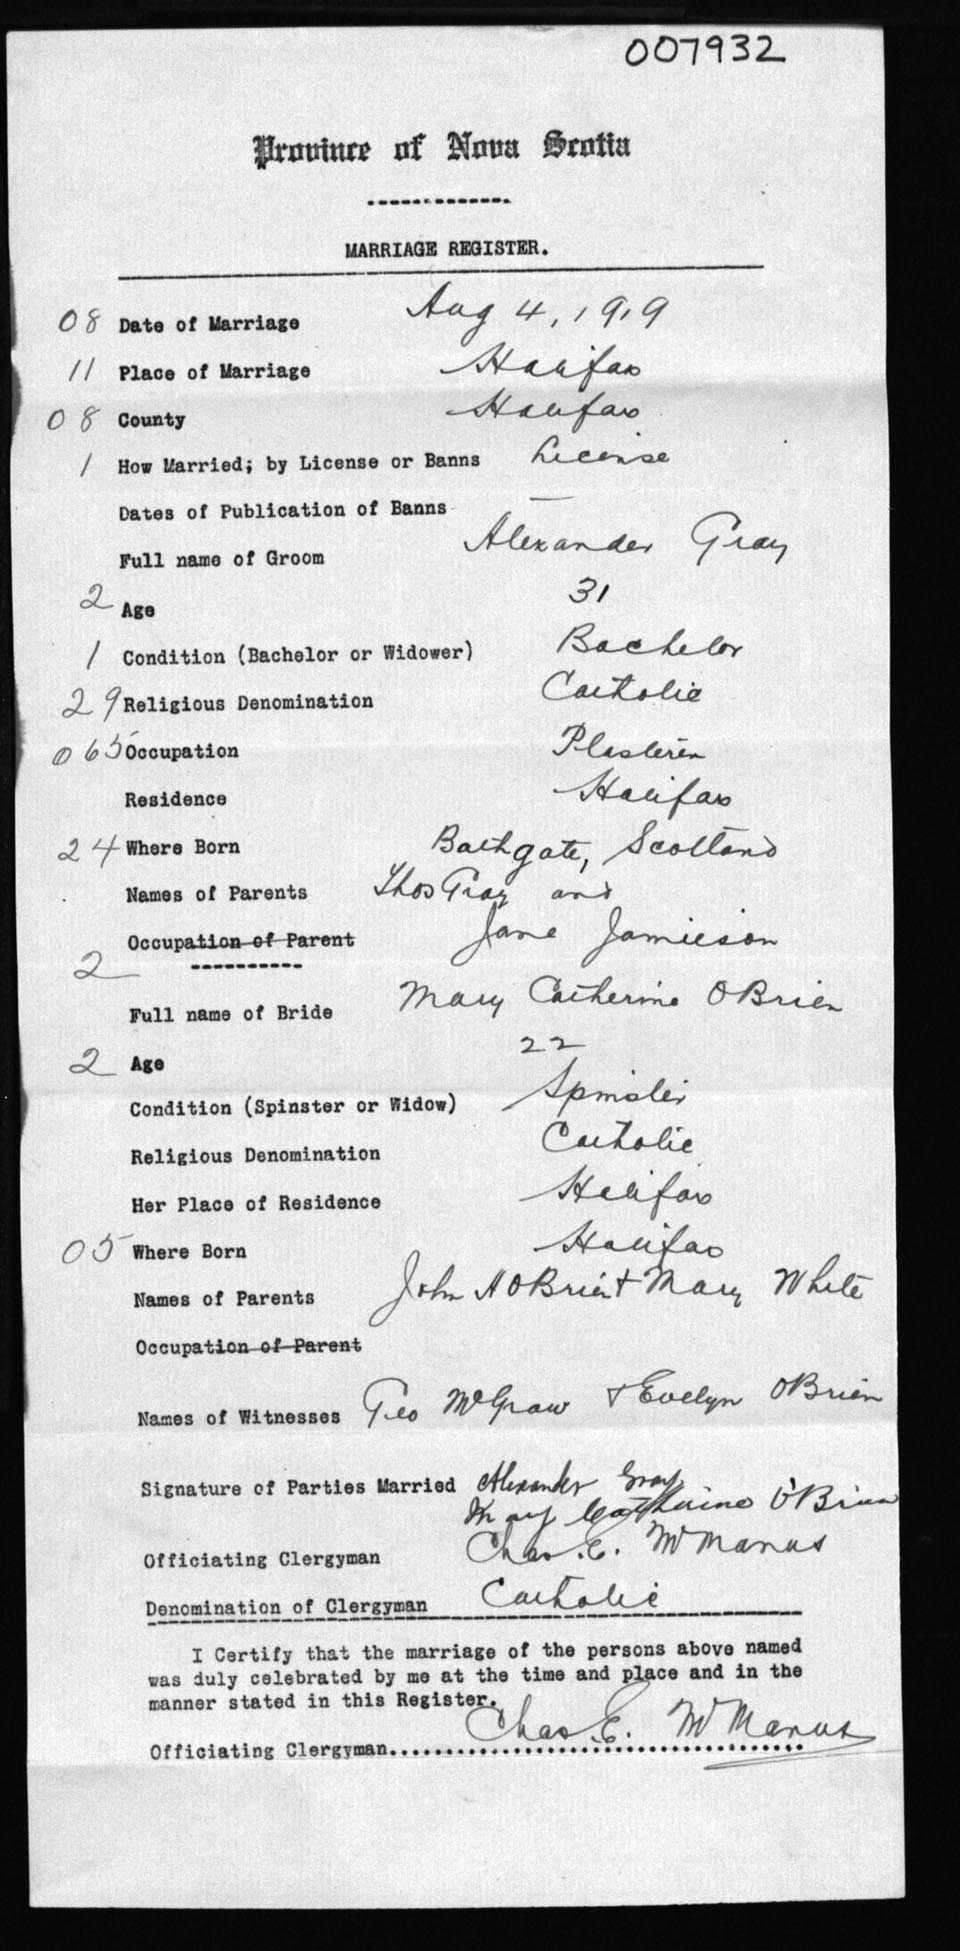 007932
Province of Nova Scotia
MARRIAGE REGISTER.
08 Date of Marriage Aug 4, 1919
11 Place of Marriage Halifax
08 County Halifax
1 How Married; by License or Banns License
Dates of Publication of Banns —
Full name of Groom Alexander Gray
2 Age 31
1 Condition (Bachelor or Widower) Bachelor
29 Religious Denomination Catholic
065 Occupation Plasterer
Residence Halifax
24 Where Born Bathgate, Scotland
Names of Parents Thos Gray and
Occupation of Parent Jane Jamieson
2
Full name of Bride Mary Catherine OBrien
2 Age 22
Condition (Spinster or Widow) Spinster
Religious Denomination Catholic
Her Place of Residence Halifax
05 Where Born Halifax
Names of Parents John A OBrien + Mary White
Occupation of Parent
Names of Witnesses Geo McGraw + Evelyn OBrien
Signature of Parties Married Alexander Gray
Mary Catherine O'Brien
Officiating Clergyman Chas. E. McManus
Denomination of Clergyman Catholic
I Certify that the marriage of the persons above named
was duly celebrated by me at the time and place and in the
manner stated in this Register.
Officiating Clergyman........ Chas E. McManus